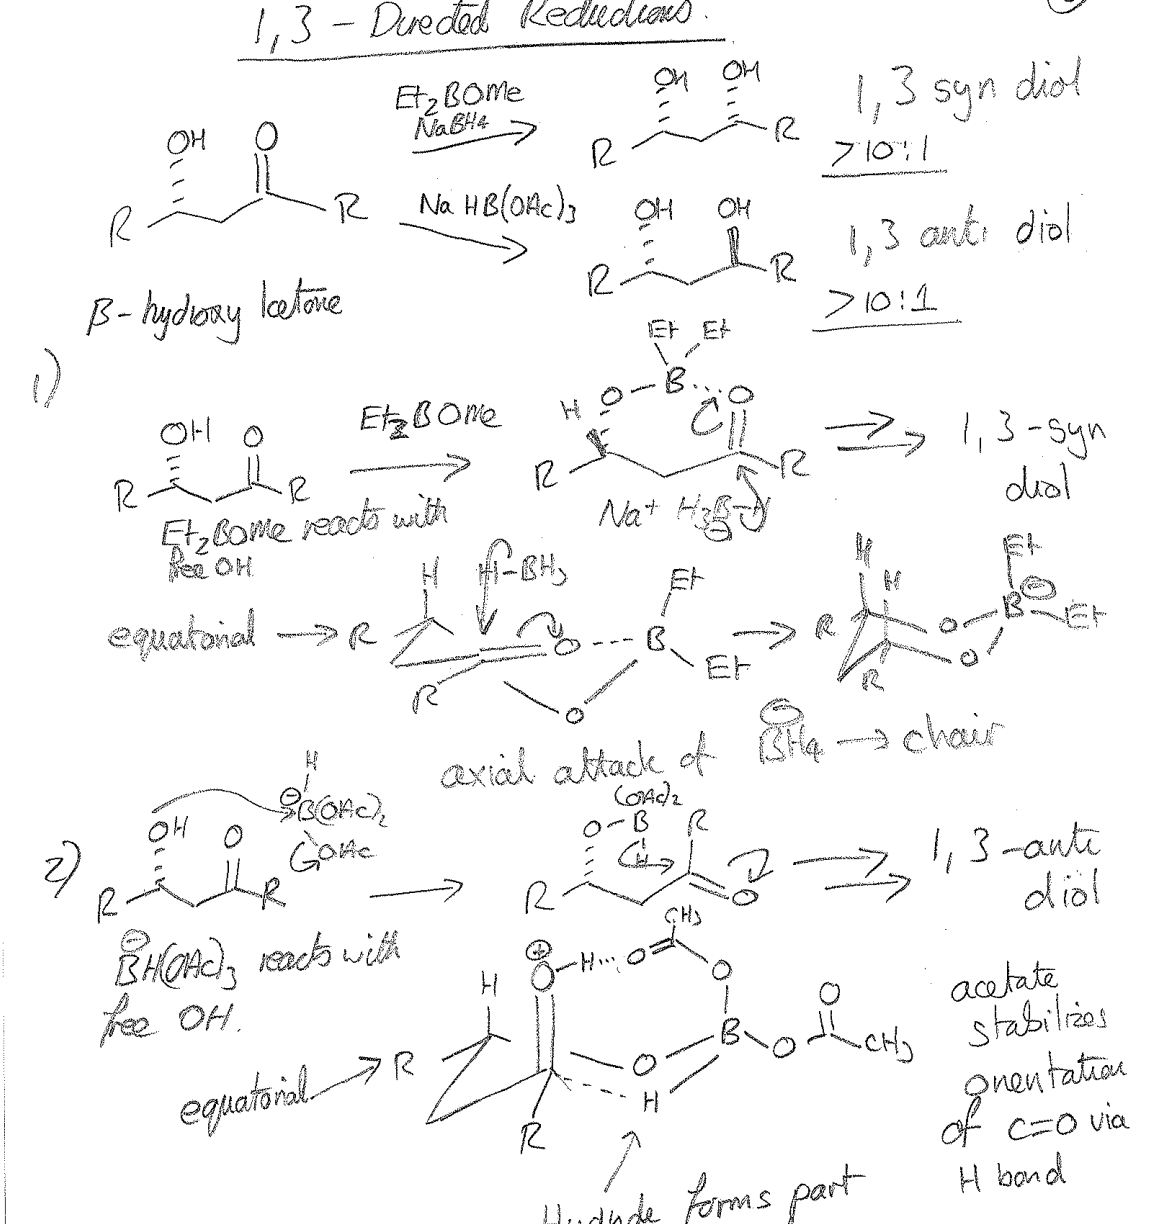 1,3 - Directed Reductions.
OH O
R R
Et2BOMe
NaBH4
OH OH
R R
1,3 syn diol
>10:1
Na HB(OAc)3
OH OH
R R
1,3 anti diol
>10:1
β-hydroxy ketone
1)
OH O
R R
Et2BOMe
Et2BOMe reacts with
free OH
Et Et
H O B O
R R
Na+ H3B-H
⊖
1,3-syn
diol
equatorial → R
H H-BH3 Et
O B
R Et
O
H H Et
R O B ⊖ Et
O
R
axial attack of ⊖BH4 → chair
2)
H
⊖B(OAc)2
OH O OAc
R R
⊖BH(OAc)3 reacts with
free OH.
(OAc)2
O-B R
H
R O
1,3-anti
diol
equatorial → R
CH3
⊕ O-H O O
H O
B O CH3
O
H
R
acetate
stabilizes
orientation
of C=O via
H bond
Hydride forms part